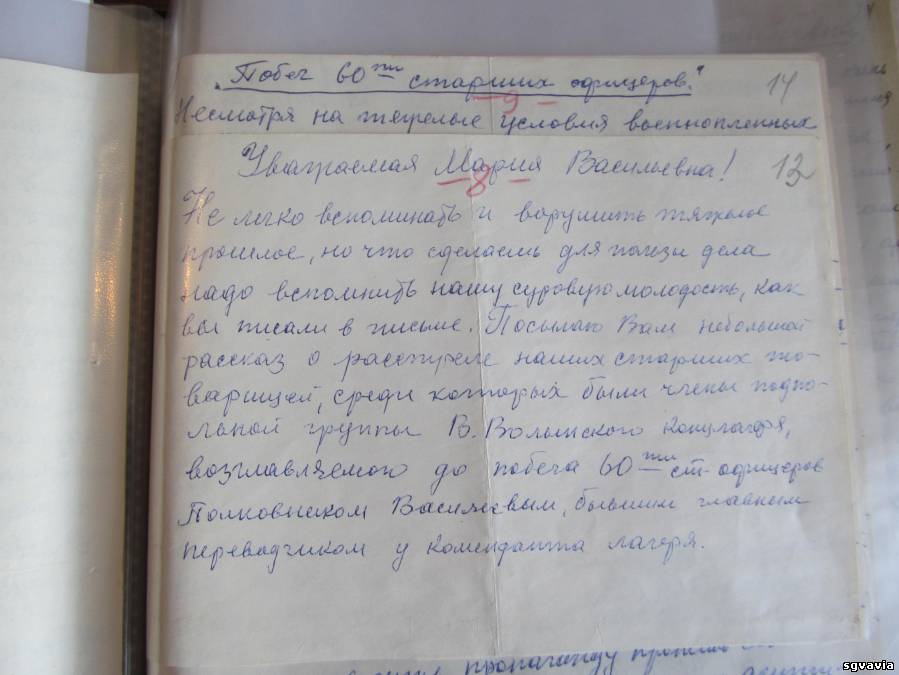 „Побег 60ти старших офицеров."
14
- 9 -
Несмотря на тяжелые условия военнопленных
Уважаемая Мария Васильевна!
12
- 8 -
Не легко вспоминать и ворушить тяжолое
прошлое, но что сделаешь для пользы дела
надо вспомнить нашу суровую молодость, как
вы писали в письме. Посылаю Вам небольшой
рассказ о расстреле наших старших то-
варищей, среди которых были члены подпо-
льной группы В. Волынского концлагеря,
возглавляемой до побега 60ти ст. офицеров
Полковником Васильевым, бывшим главным
переводчиком у коменданта лагеря.
пропаганду против
sgvavia